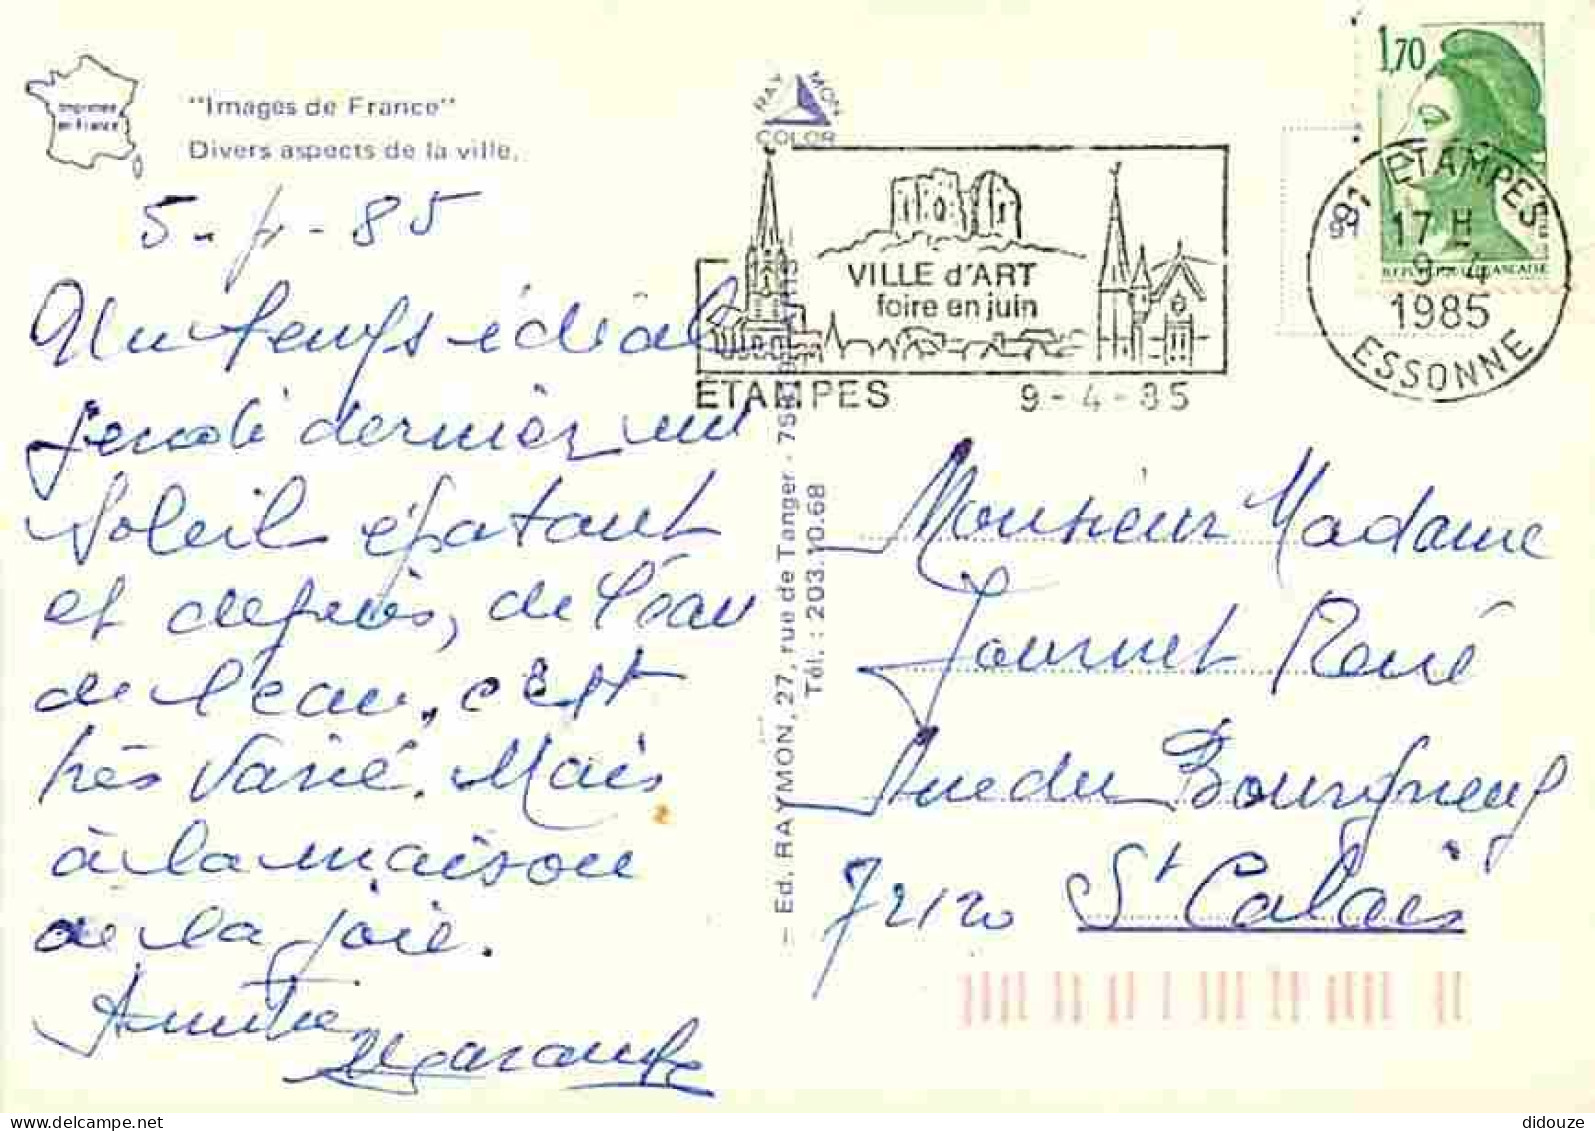 Imprimée
en France
"Images de France"
Divers aspects de la ville.
RAYMON
COLOR
1,70
REPUBLIQUE FRANCAISE
91 ETAMPES
17 H
9-4
1985
ESSONNE
VILLE d'ART
foire en juin
ETAMPES 9-4-85
5-4-85
Un temps idéal
jeudi dernier un
soleil épatant
et depuis, de l'eau
de l'eau, c'est
très varié. Mais
à la maison
de la joie.
Amitié
Ed. RAYMON, 27, rue de Tanger - 75019 PARIS
Tél. : 203.10.68
Monsieur Madame
Journet René
Rue du Bourgneuf
72120 St Calais
didouze